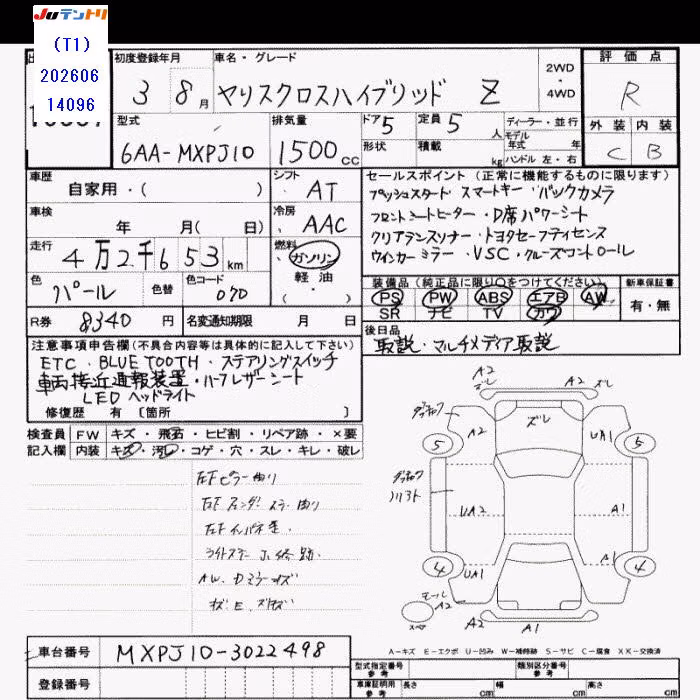 JUテントリ
(T1)
202606
14096
初度登録年月
3 8月
車名・グレード
ヤリスクロスハイブリッド Z
2WD
・
4WD
評価点
R
外装 内装
C B
型式
6AA-MXPJ10
排気量
1500cc
ドア5
定員5人
形状
積載 kg
ディーラー・並行
モデル年式 年
ハンドル 左・右
車歴
自家用・( )
シフト AT
車検
年 月( 日)
冷房 AAC
走行
4万2千653km
燃料
ガソリン
軽油
( )
色
パール
色替
色コード
070
R券 8340円
名変通知期限 月 日
セールスポイント(正常に機能するものに限ります)
プッシュスタート スマートキー・バックカメラ
フロントシートヒーター・D席パワーシート
クリアランスソナー・トヨタセーフティセンス
ウインカーミラー・VSC・クルーズコントロール
装備品(純正品に限り○をつけてください)
PS PW ABS エアB AW
SR ナビ TV カワ
新車保証書
有・無
後日品
取説・マルチメディア取説
注意事項申告欄(不具合内容等は具体的に記入して下さい)
ETC・BLUETOOTH・ステアリングスイッチ
車両接近通報装置・ハーフレザーシート
LEDヘッドライト
修復歴 有 〔箇所 〕
検査員 FW キズ・飛石・ヒビ割・リペア跡・×要
記入欄 内装 キズ・汚れ・コゲ・穴・スレ・キレ・破レ
左Fピラー曲り
左Fインパネ歪
A2 A2 ズレ
ズレ
A2 UA1
5 5
UA2 A1
4 UA1 A1 4
モール A2
A2 A1
A-キズ E-エクボ U-凹み W-補修跡 S-サビ C-腐食 XX-交換済
車台番号 MXPJ10-3022498
登録番号
型式指定番号 参考
類別区分番号 参考
車庫証明用 参考 長さ cm 幅 cm 高さ cm